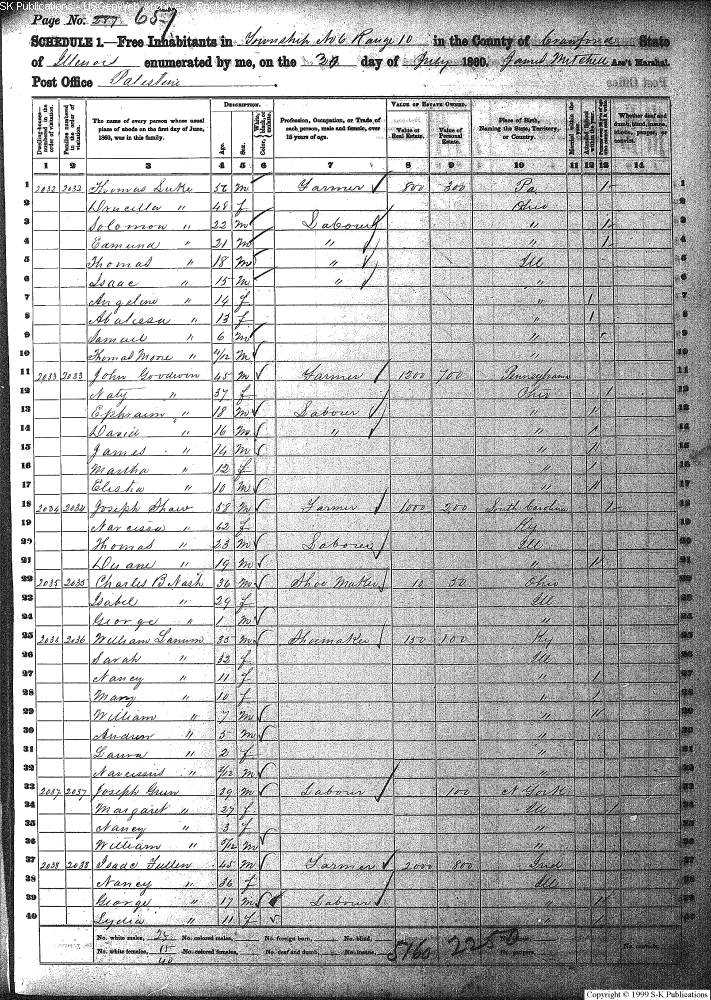 SK Publications - USGenWeb Archives - Rootsweb
Page No. 287 657
SCHEDULE 1.—Free Inhabitants in Township No 6 Range 10 in the County of Crawford State
of Illinois enumerated by me, on the 30 day of July 1860. James Mitchell Ass't Marshal.
Post Office Palestine
DESCRIPTION. VALUE OF ESTATE OWNED.
Dwelling-houses—numbered in the order of visitation. Families numbered in the order of visitation. The name of every person whose usual place of abode on the first day of June, 1860, was in this family. Age. Sex. Color, White, black, or mulatto. Profession, Occupation, or Trade, of each person, male and female, over 15 years of age. Value of Real Estate. Value of Personal Estate. Place of Birth, Naming the State, Territory, or Country. Married within the year. Whether deaf and dumb, blind, insane, idiotic, pauper, or convict.
1 2 3 4 5 6 7 8 9 10 11 12 13 14
1 2032 2032 Thomas Luke 56 m Farmer 800 300 Pa 1 1
2 Drucilla " 48 f Ohio 2
3 Solomon " 22 m Labour " 1 3
4 Edmund " 21 m " " 1 4
5 Thomas " 18 m " Ill 5
6 Isaac " 15 m " " 6
7 Angeline " 14 f " 1 7
8 " 13 f " 1 8
9 Samuel " 6 m " 9
10 Thomas Moore " /12 m " 10
11 2033 2033 John Goodwin 45 m Farmer 1200 700 Pennsylvania 11
12 Naty " 37 f Ohio 1 12
13 Ephraim " 18 m Labour " 1 13
14 David " 16 m " " 1 14
15 James " 14 m " 1 15
16 Martha " 12 f " 1 16
17 Elisha " 10 m " 1 17
18 2034 2034 Joseph Shaw 58 m Farmer 1000 200 South Carolina 1 18
19 Narcissa " 62 f Ky 19
20 Thomas " 23 m Labour Ill 20
21 Duane " 19 m " 1 21
22 2035 2035 Charles B Nash 36 m Shoe Maker 10 50 Ohio 22
23 Isabel " 29 f Ill 23
24 George " 1 m " 24
25 2036 2036 William Lanum 35 m Shoemaker 150 100 Ky 25
26 Sarah " 32 f Ill 26
27 Nancy " 11 f " 1 27
28 Mary " 10 f 1 28
29 William " 7 m " 1 29
30 Andrew " 5 m " 30
31 Laura " 2 f " 31
32 Narcissus " /12 m " 32
33 2037 2037 Joseph Green 29 m Labour 100 N York 33
34 Margaret " 27 f Ill 1 34
35 Nancy " 3 f " 35
36 William " /12 m " 36
37 2038 2038 Isaac Fullen 45 m Farmer 2000 800 Ind 37
38 Nancy " 36 f Ill 38
39 George " 17 m Labour " 1 39
40 Lydia " 11 f 1 40
No. white males, 25 No. colored males, No. foreign born, No. blind, 5760 2250 No. convicts.
No. white females, 15 No. colored females, No. deaf and dumb, No. insane, No. paupers,
40
Copyright © 1999 S-K Publications